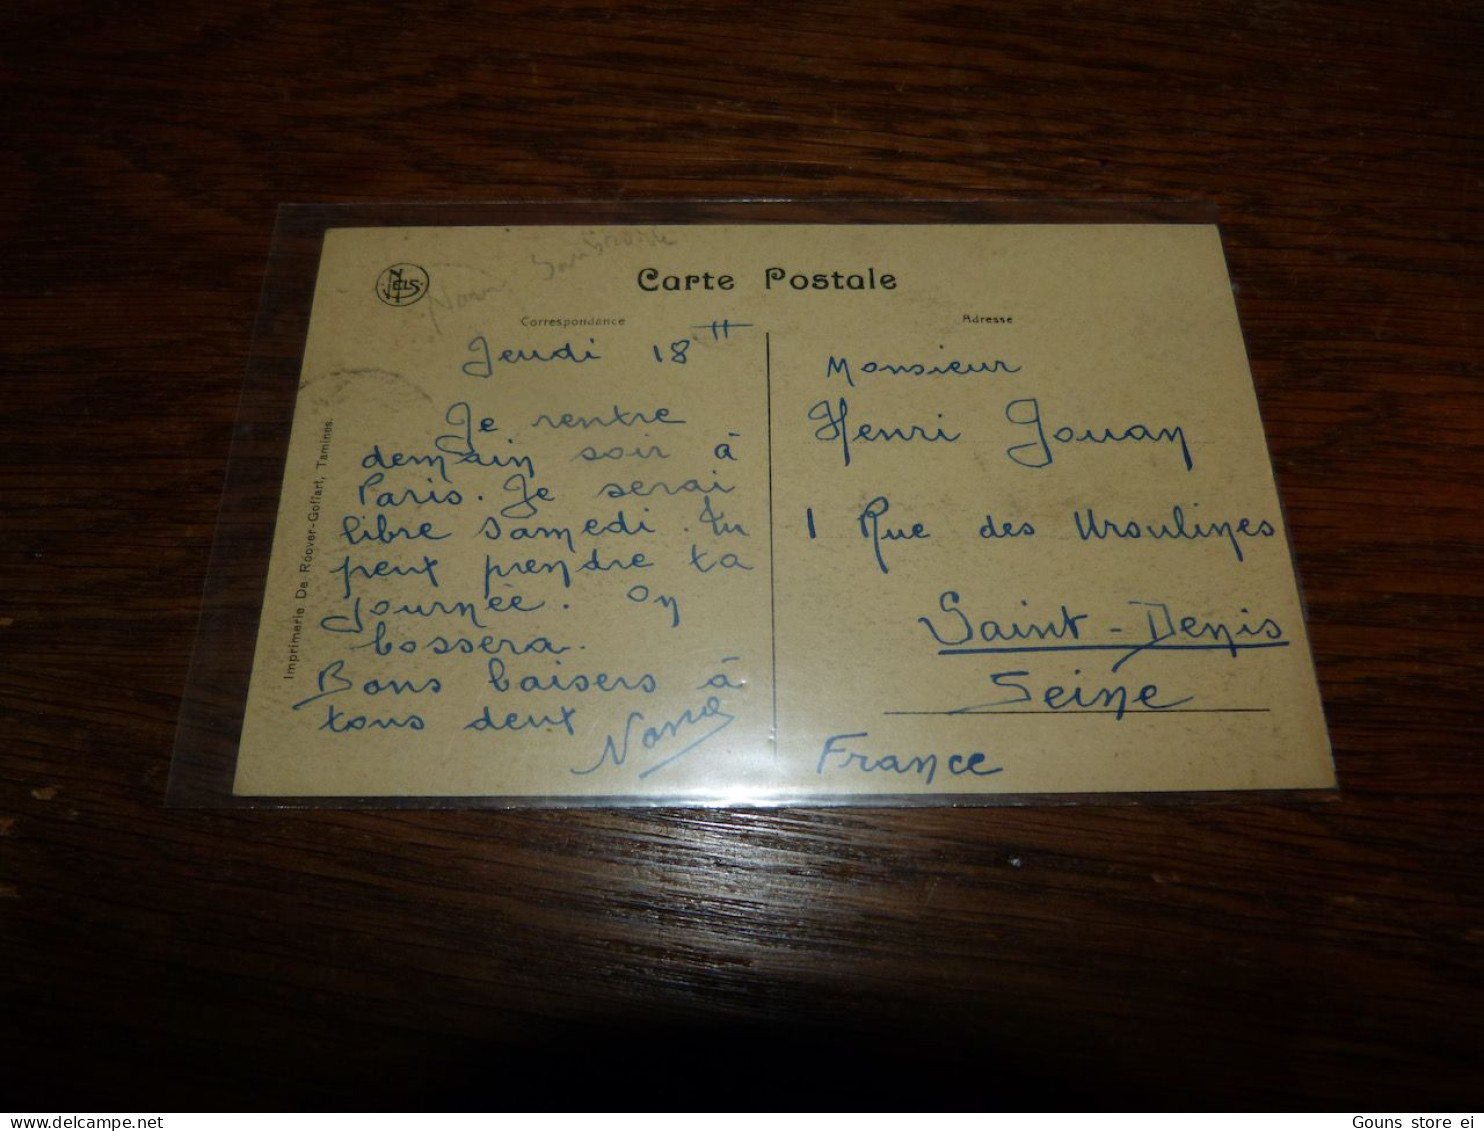 Carte Postale
NELS
Correspondance
Adresse
Jeudi 18
Je rentre
demain soir à
Paris. Je serai
libre samedi. Tu
peut prendre ta
journée. On
bossera.
Bons baisers à
tous deux
Monsieur
Henri Jouan
1 Rue des Ursulines
Saint-Denis
Seine
France
Imprimerie De Roover-Goffart, Tamines.
www.delcampe.net
Gouns store ei